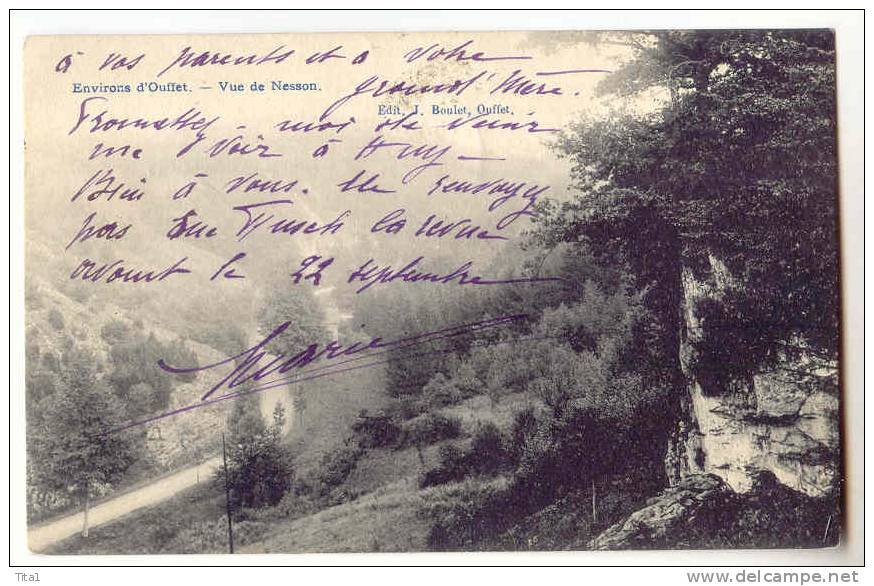 à vos parents et à votre
grand'Mère.
Environs d'Ouffet. — Vue de Nesson.
Edit. J. Boulet, Ouffet.
Promettez - moi de venir
me voir à Huy —
Bien à vous. Ne renvoyez
pas la revue
avant le 22 septembre
Marie
Tita1
www.delcampe.net